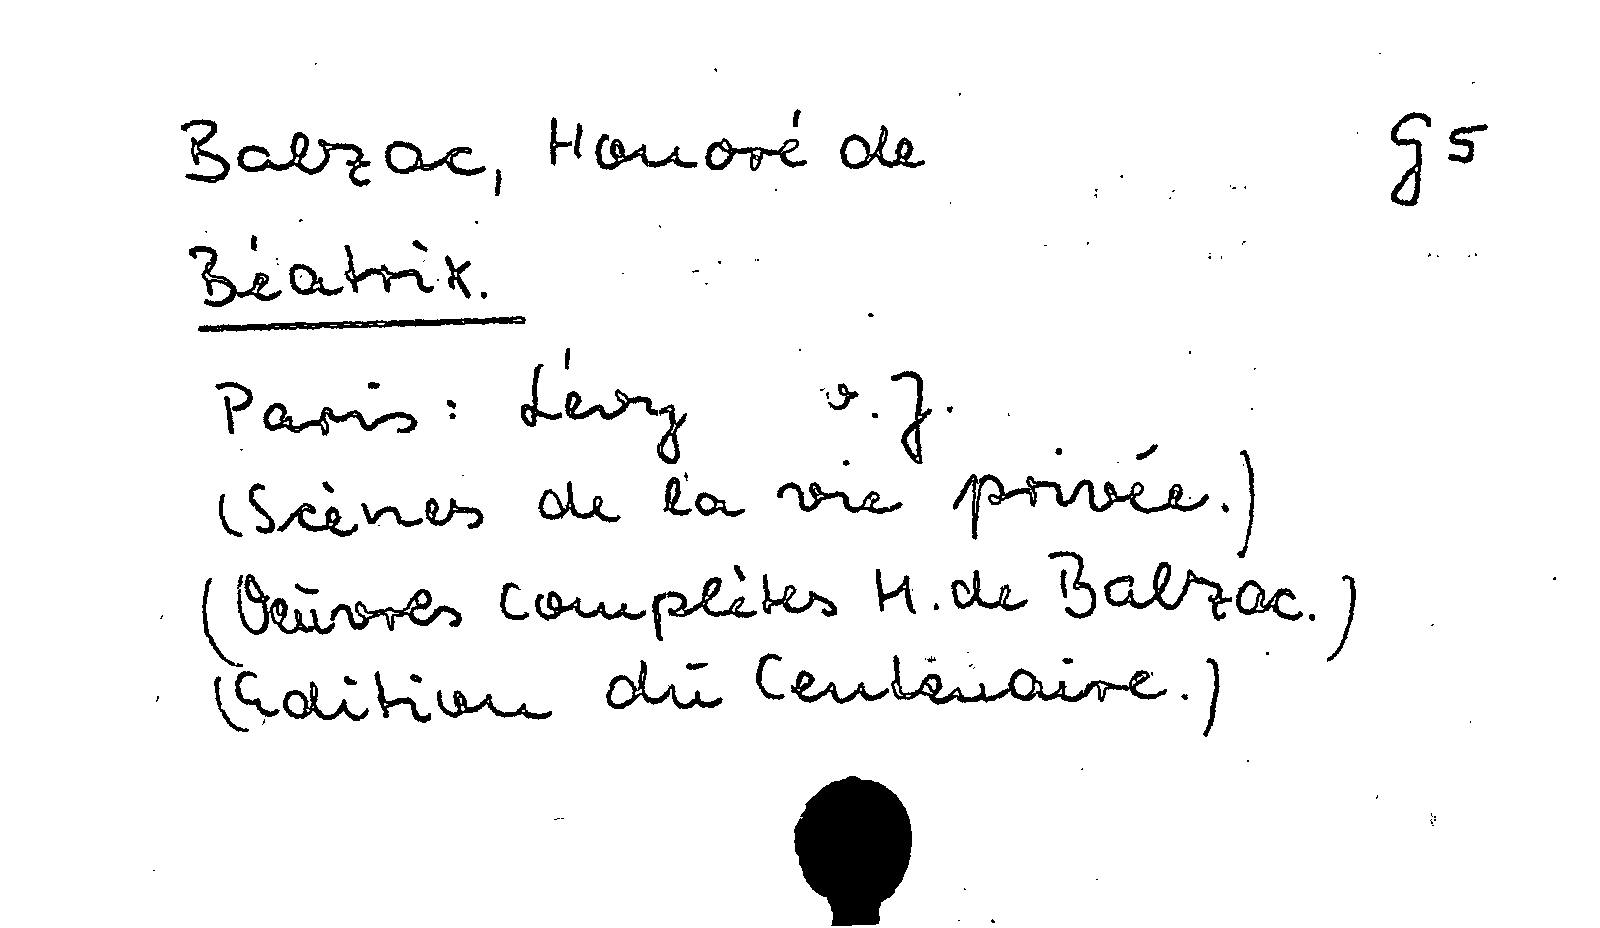 Balzac, Honoré de G5
Béatrix.
Paris: Lévy o.J.
(Scènes de la vie privée.)
(Oeuvres complètes H. de Balzac.)
(Edition du Centenaire.)